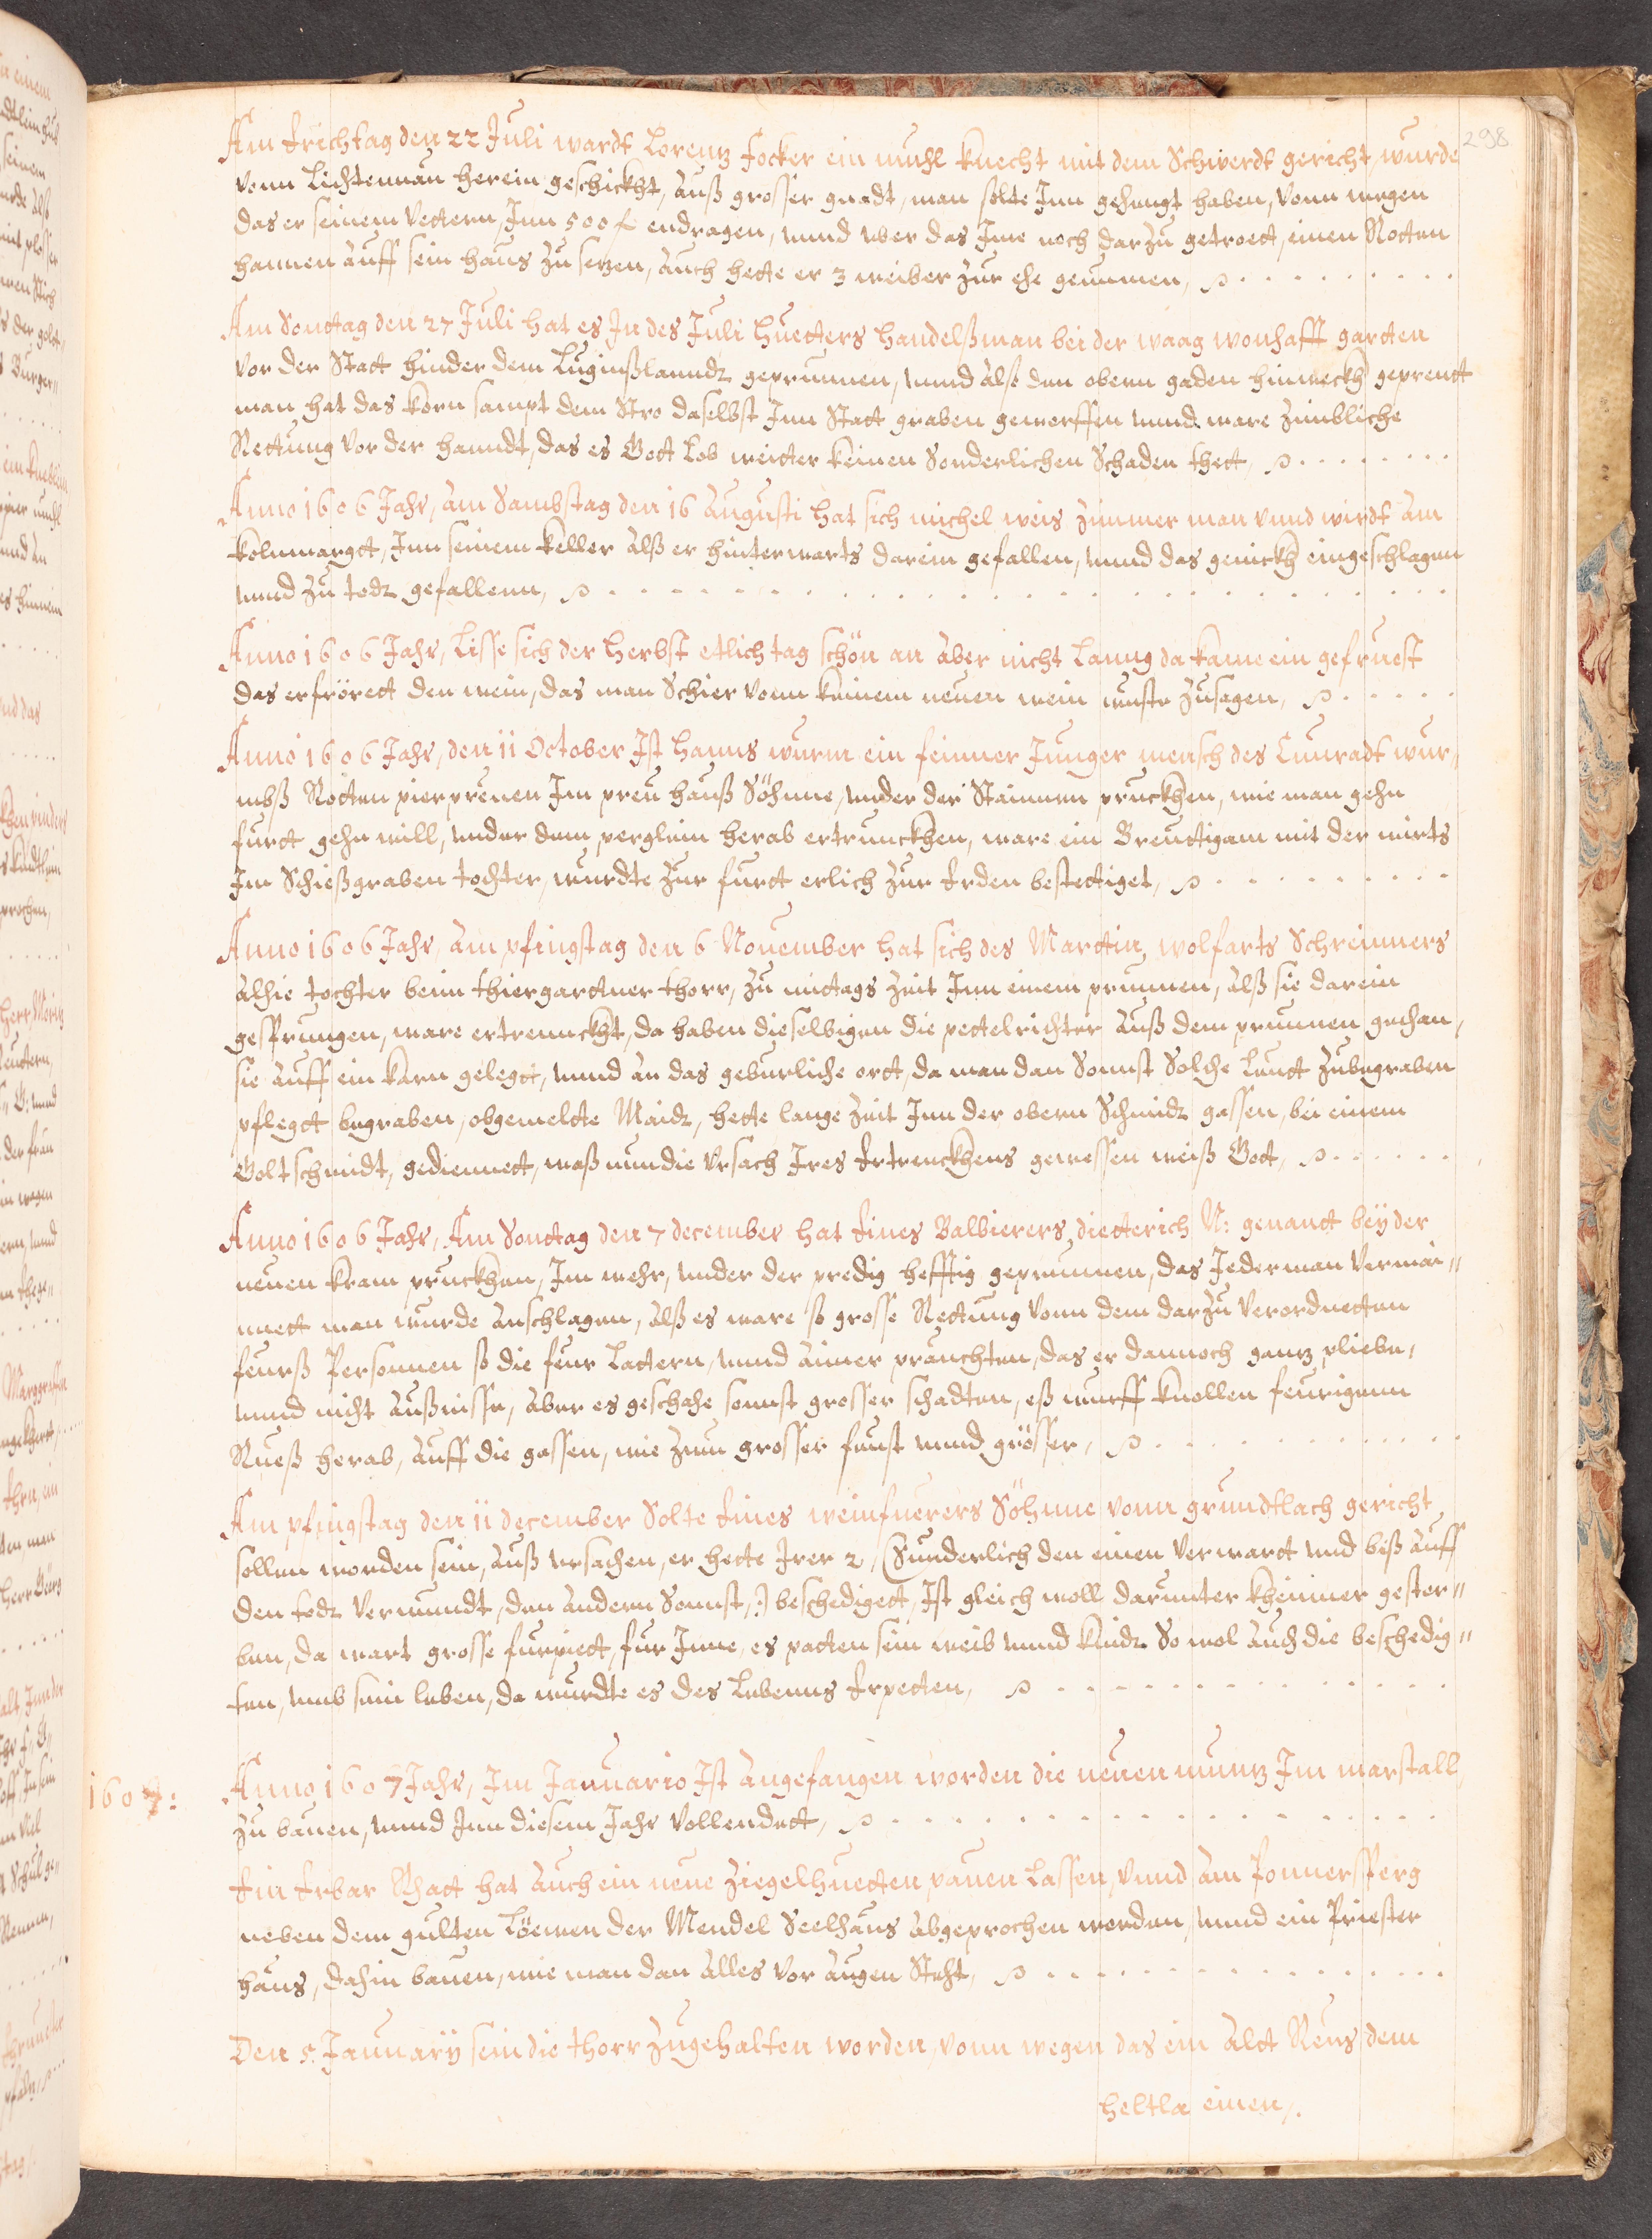 298
Am Erichtag den 22 Juli wardt Lorentz Focker ein muhl knecht mit dem Schwerdt gericht, wurde
vonn Lichtennau herein geschickht, auß grosser gnadt, man solte Inn gehengt haben, vonn wegen
das er seinem Vettern, Inn 500 f endragen, unnd uber das Ime noch darzu getroett, einen Rotten
hannen auff sein haus zu setzen, auch hette er 3 weiber zur ehe genumen,
Am Sontag den 27 Juli hat es In des Juli Huetters handelßman bei der waag wonhafft garten
vor der Statt hinder dem Luginßlanndt geprunnen, unnd alß den obern gaden hinweckh geprentt
man hat das korn sampt dem Stro daselbst Inn Statt graben geworffen unnd ware zimbliche
Rettung vor der hanndt, das es Gott Lob weitter keinen Sonderlichen Schaden thett,
Anno 1606 Jahr, am Sambstag den 16 Augusti hat sich michel weis zimmer man unnd wirdt am
kolnmargtt, Inn seinem keller alß er hinterwarts darein gefallen, unnd das genickh eingeschlagen
unnd zu todt gefallenn,
Anno 1606 Jahr, Lisse sich der Herbst etlich tag schön an aber nicht Lanng da kame ein gefruest
das erfrörett den wein, das man Schier vonn keinem neuen wein wuste zusagen,
Anno 1606 Jahr, den 11 October Ist Hanns wurm ein feinner Junger mensch des Cunradt wur,,
mbß Rotten pierprenen Im preu hauß Söhnne, under der Stainnen pruckhen, wie man gehn
furtt gehn will, under dem perglein herab ertrunckhen, ware ein Breuttigam mit der wirts
Im Schießgraben tochter, wurdte zur furtt erlich zur Erden bestettiget,
Anno 1606 Jahr, am pfingstag den 6 November hat sich des Marttin wolfarts Schreinners
alhie tochter beim thiergarttner thorr, zu mittags zeit Inn einem prunnen, alß sie darein
gesprungen, ware ertrennckht, da haben dieselbigen die pettelrichter auß dem prunnen gethan,
sie auff ein karn gelegtt, unnd an das geburliche ortt, da man dan Sonnst Solche Leutt zubegraben
pflegtt begraben, obgemelte Maidt, hette lange zeit Inn der obern Schmidt gassen, bei einem
Goltschmidt, gediennett, waß nun die ursach Ires Ertrenckhens gewessen weiß Gott,
Anno 1606 Jahr, Am Sontag den 7 december hat Eines Balbierers, dietterich N: genantt bey der
neuen kram pruckhen, Im mehr, under der predig hefftig geprunnen, das Jederman vermai,,
nnett man wurde anschlagen, alß es ware so grosse Rettung vonn dem darzu verordnetten
feurß Personnen so die feur Lattern, unnd aimer prauchten, das er dannoch gantz pliebe,
unnd nicht außrisse, aber es geschahe sonnst grosser schadten, eß wurff knollen feurigenn
Rueß herab, auff die gassen, wie zwu grosser faust unnd grösser,
Am pfingstag den 11 december Solte Eines weinfuerers Söhnne vonn grundtlach gericht
sollen worden sein, auß ursachen, er hette Irer 2, (Sunderlich den einen verwart und biß auff
den todt verwundt, den andern Sonnst,) beschedigett, Ist gleich woll darunter kheinner gestor,,
ben, da wart grosse furpiett, fur Inne, es patten sein weib unnd kindt So wol auch die beschedig,,
ten, umb sein leben, da wurdte es des Lebenns Erpetten,
1607:
Anno 1607 Jahr, Im Januario Ist angefangen worden die neuen muntz Im marstall
zu bauen, unnd Inn diesem Jahr vollendett,
Ein Erbar Rhatt hat auch ein neue ziegelhuetten pauen Lassen, unnd am Ponnersperg
neben dem gulten Löewen der Mendel Seelhaus abgeprochen worden, unnd ein Priester
haus, dahin bauen, wie man dan alles vor augen Steht,
Den 5. Januarÿ sein die thorr zugehalten worden, vonn wegen das ein alt Reus dem
heltla einen,.